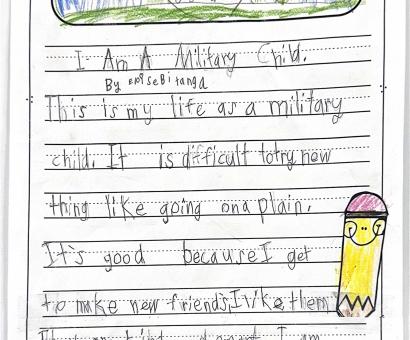 I Am A Military Child.
By
This is my life as a military
child. It is difficult totry new
thing like going ona plain.
It's good because I get
to make new friends, I like them
I am